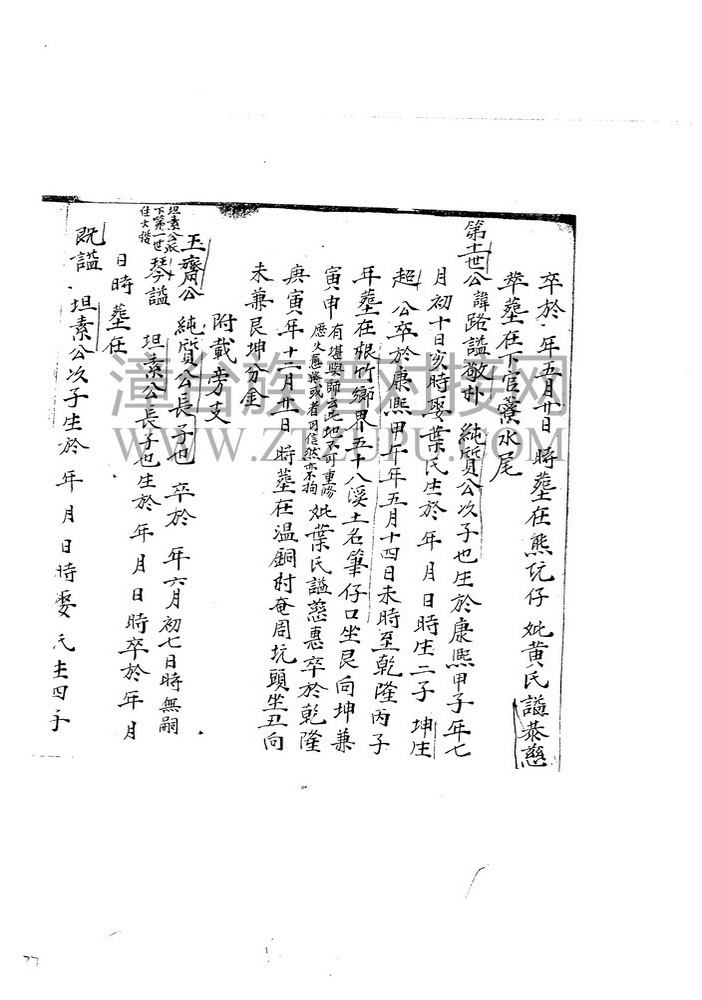 卒於 年五月廿日 時塟在熊阬仔 妣黃氏謚恭慈
塟在下官藔水尾
第十世公諱路謚敬朴 純質公次子也生於康熙甲子年七
月初十日亥時娶葉氏生於 年 月 日時生二子 坤生
超 公卒於康熙甲 年五月十四日未時至乾隆丙子
年塟在根竹鄉界五十八溪土名筆仔口坐艮向坤兼
寅申 有堪輿師云此地不可重 應火 或者可信然亦不拘 妣葉氏謚慈惠卒於乾隆
庚寅年十二月廿一日時塟在温銅 奄周坑頭坐丑向
未兼艮坤分金
附載旁支
玉齋公 純質公長子也 卒於 年六月初七日時無嗣
坦素公
下第一世
住大
琴謚 坦素公長子也生於 年 月 日時卒於 年 月
日時塟在
既謚 坦素公次子生於 年 月 日時娶 氏生四子
漳台族谱对接网
WWW.ZTZUPU.COM
77